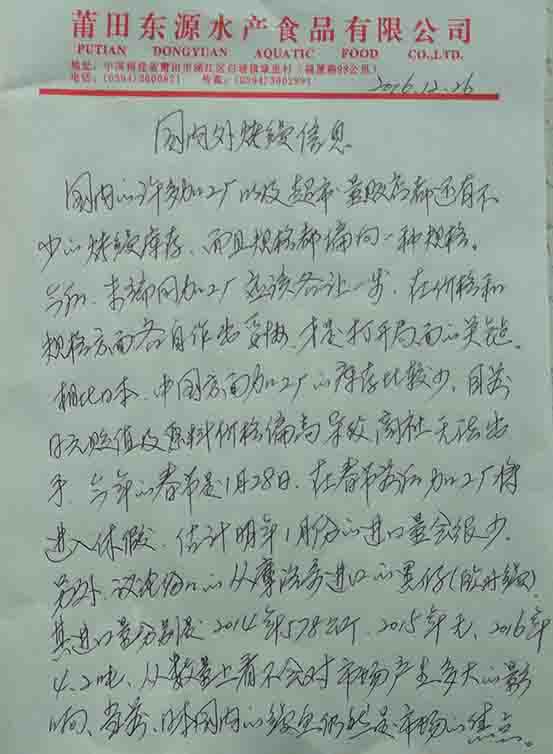 莆田东源水产食品有限公司
PUTIAN DONGYUAN AQUATIC FOOD CO.,LTD.
地址：中国福建省莆田市涵江区白塘镇
2016.12.26
国内外烤鳗信息
国内的许多加工厂以及超市量贩店都还有不
少的烤鳗库存，而且规格都偏向一种规格。
今后，走部同加工厂应该各让一步，在价格和
规格方面各自作出妥协，才是打开局面的关键。
相比日本，中国方面加工厂的库存比较少，目前
日元贬值及原料价格偏高导致商社无法出
手，今年的春节是1月28日，在春节前后加工厂将
进入休假，估计明年1月份的进口量会很少。
另外，从摩洛哥进口的黑仔(欧洲鳗)
其进口量分别是2014年578公斤，2015年无，2016年
4.2吨，从数量上看不会对市场产生多大的影
响，当前，日本国内的鳗鱼仍然是市场的焦点。